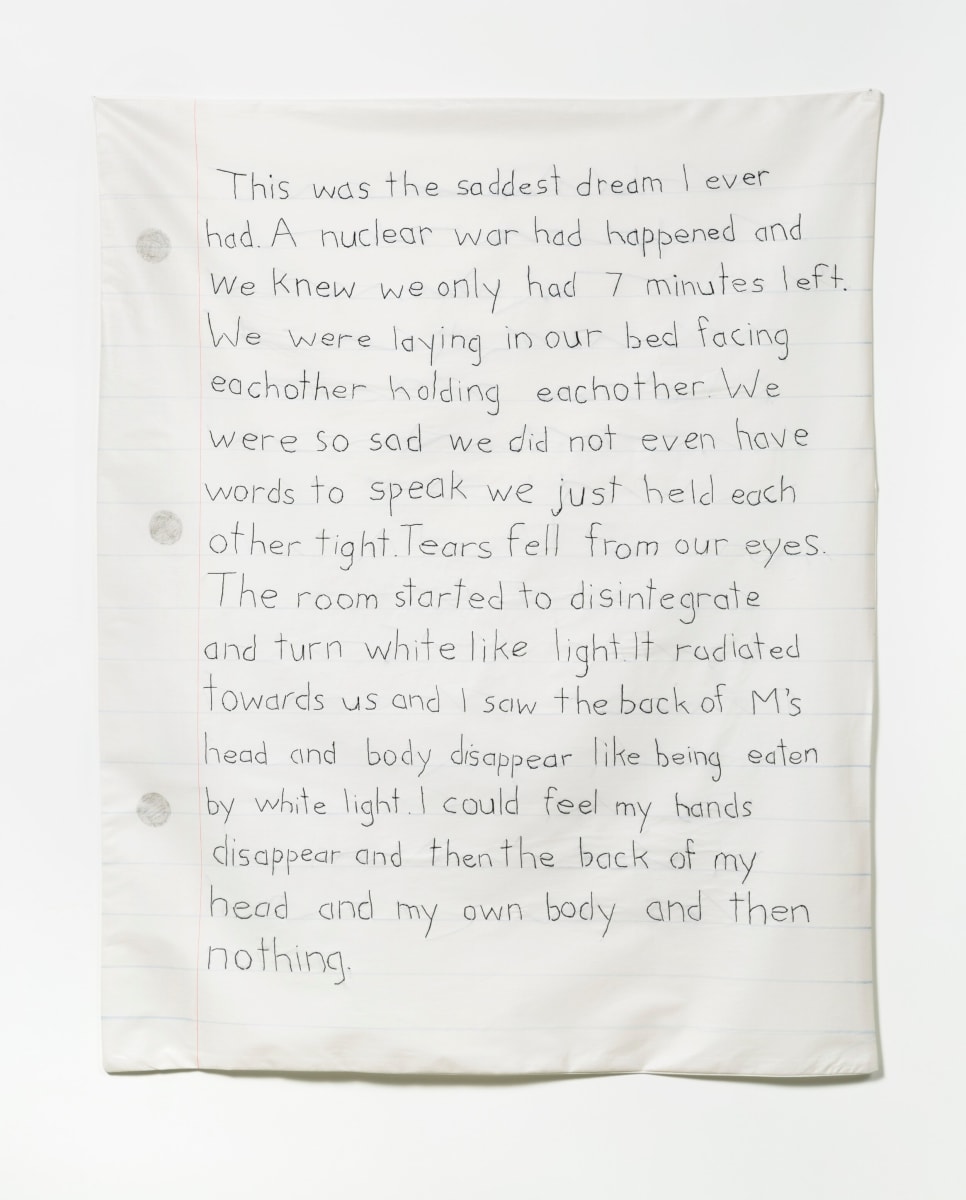 This was the saddest dream I ever
had. A nuclear war had happened and
We knew we only had 7 minutes left.
We were laying in our bed facing
eachother holding eachother. We
were so sad we did not even have
words to speak we just held each
other tight. Tears fell from our eyes.
The room started to disintegrate
and turn white like light. It radiated
towards us and I saw the back of M's
head and body disappear like being eaten
by white light. I could feel my hands
disappear and then the back of my
head and my own body and then
nothing.